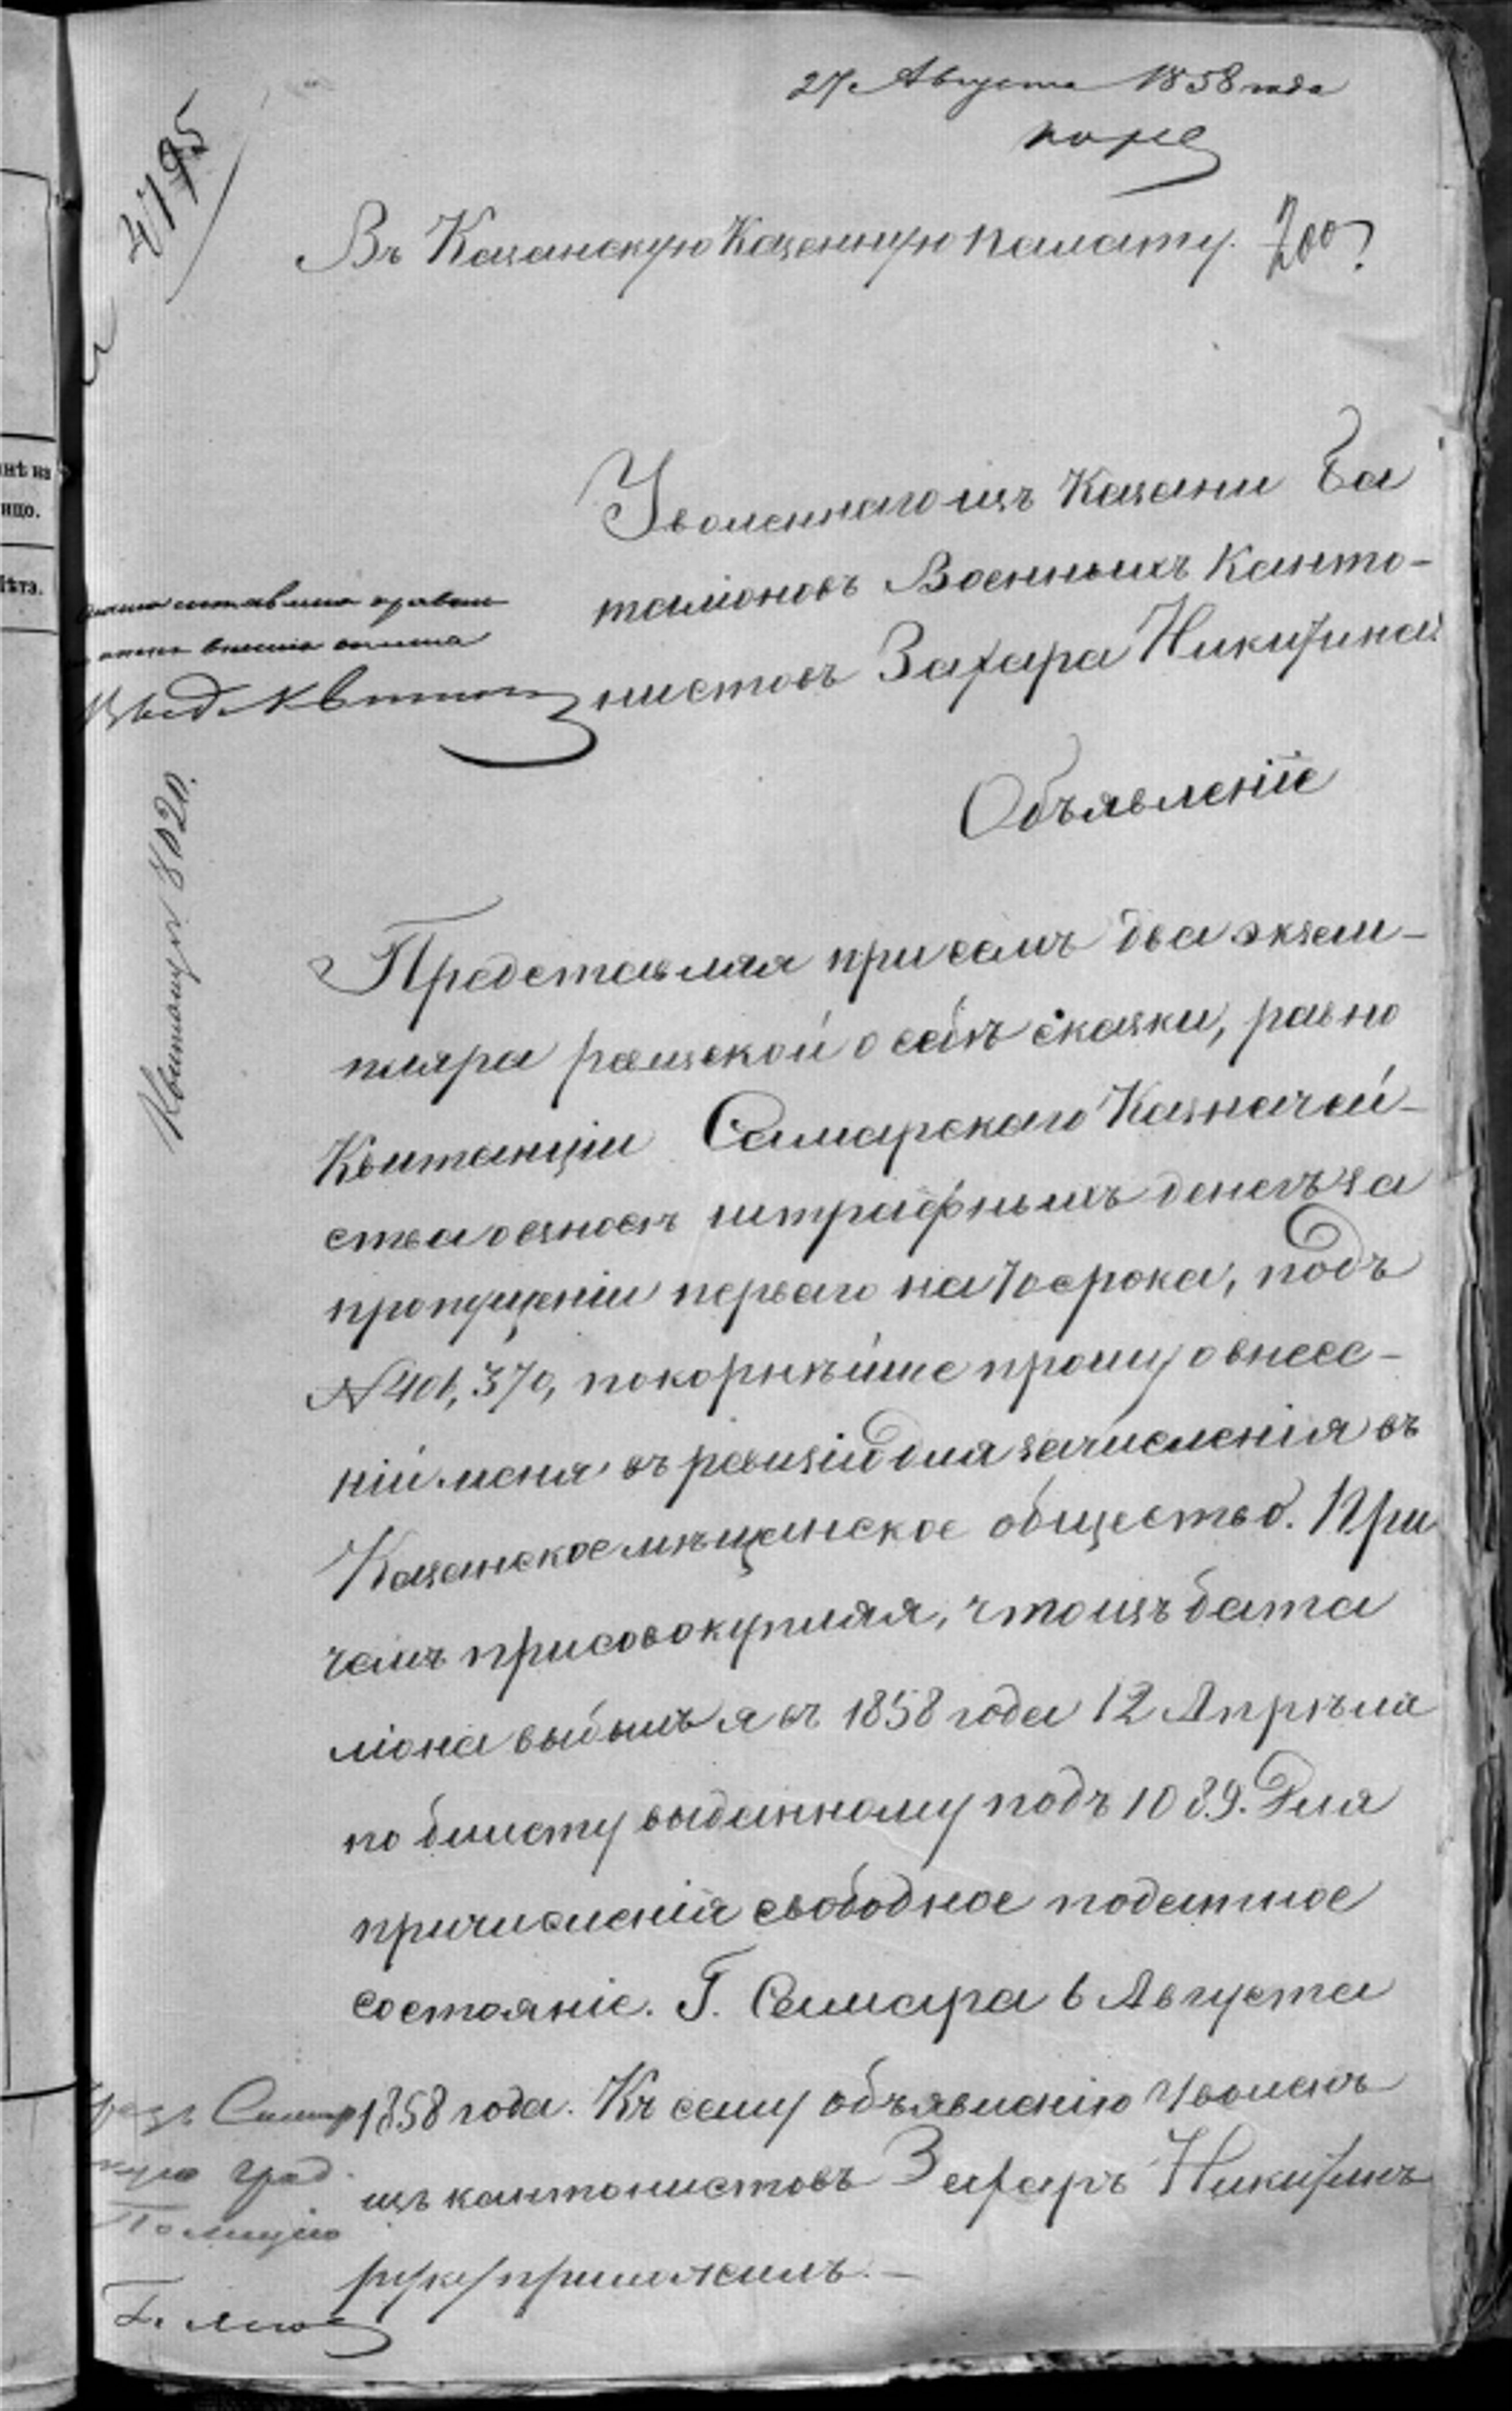 27 Августа 1858 года
4195
Въ Казанскую Казенную палату. 200
нѣ на
ицо.
лѣта.
Уволеннаго изъ Казани Ба
таліоновъ Военныхъ Канто-
нистовъ Захара Никитина
Объявленіе
Квитанц 8020.
Представляя при семъ два экзем-
пляра ревизской о себѣ сказки, равно
Квитанціи Самарскаго Казначей-
ства о взносѣ штрафныхъ денегъ за
пропущеніи перваго на то срока, подъ
№ 401, 370, покорнѣйше прошу о внесе-
ніи меня въ ревизію для зачисленія въ
Казанское мѣщанское общество. При
чемъ присовокупляя, что изъ бата
ліона выбылъ я въ 1858 года 12 Апрѣля
по билету выданному подъ 1089. Для
причисленія свободное податное
состояніе. Г. Самара 6 Августа
1858 года. Къ сему объявленію уволенъ
изъ кантонистовъ Захаръ Никитинъ
руку приложилъ. -
град.
Полицію